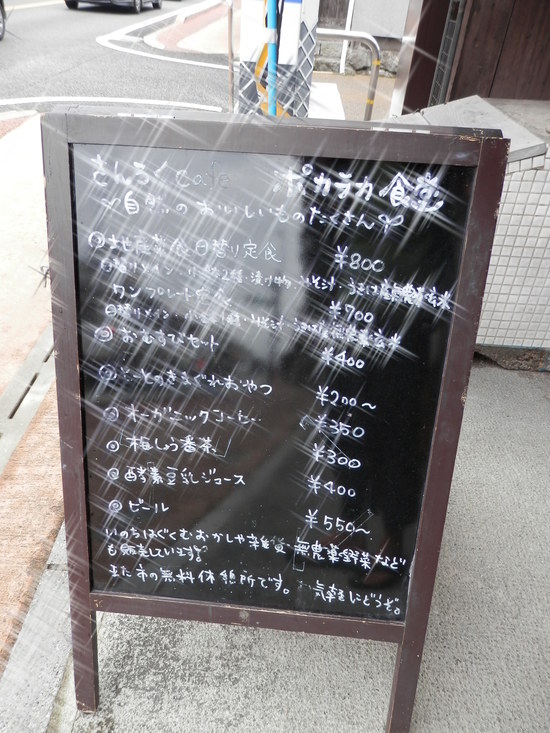 さんろくcafe ポカラカ食堂
♡自然のおいしいものたくさん
◎ 日替り定食 ¥800
日替りメイン・ 2種・漬け物・みそ汁・ 玄米
ワンプレート定食 ¥700
日替りメイン・ みそ汁・ 玄米
◎ おむすびセット ¥400
◎ きまぐれおやつ ¥200〜
◎ オーガニックコーヒー ¥350
◎ 梅しょう番茶 ¥300
◎ 酵素豆乳ジュース ¥400
◎ ビール ¥550〜
いのちはぐくむおかしや雑貨・無農薬野菜など
も販売しています。
また市の無料休憩所です。 気軽にどうぞ。